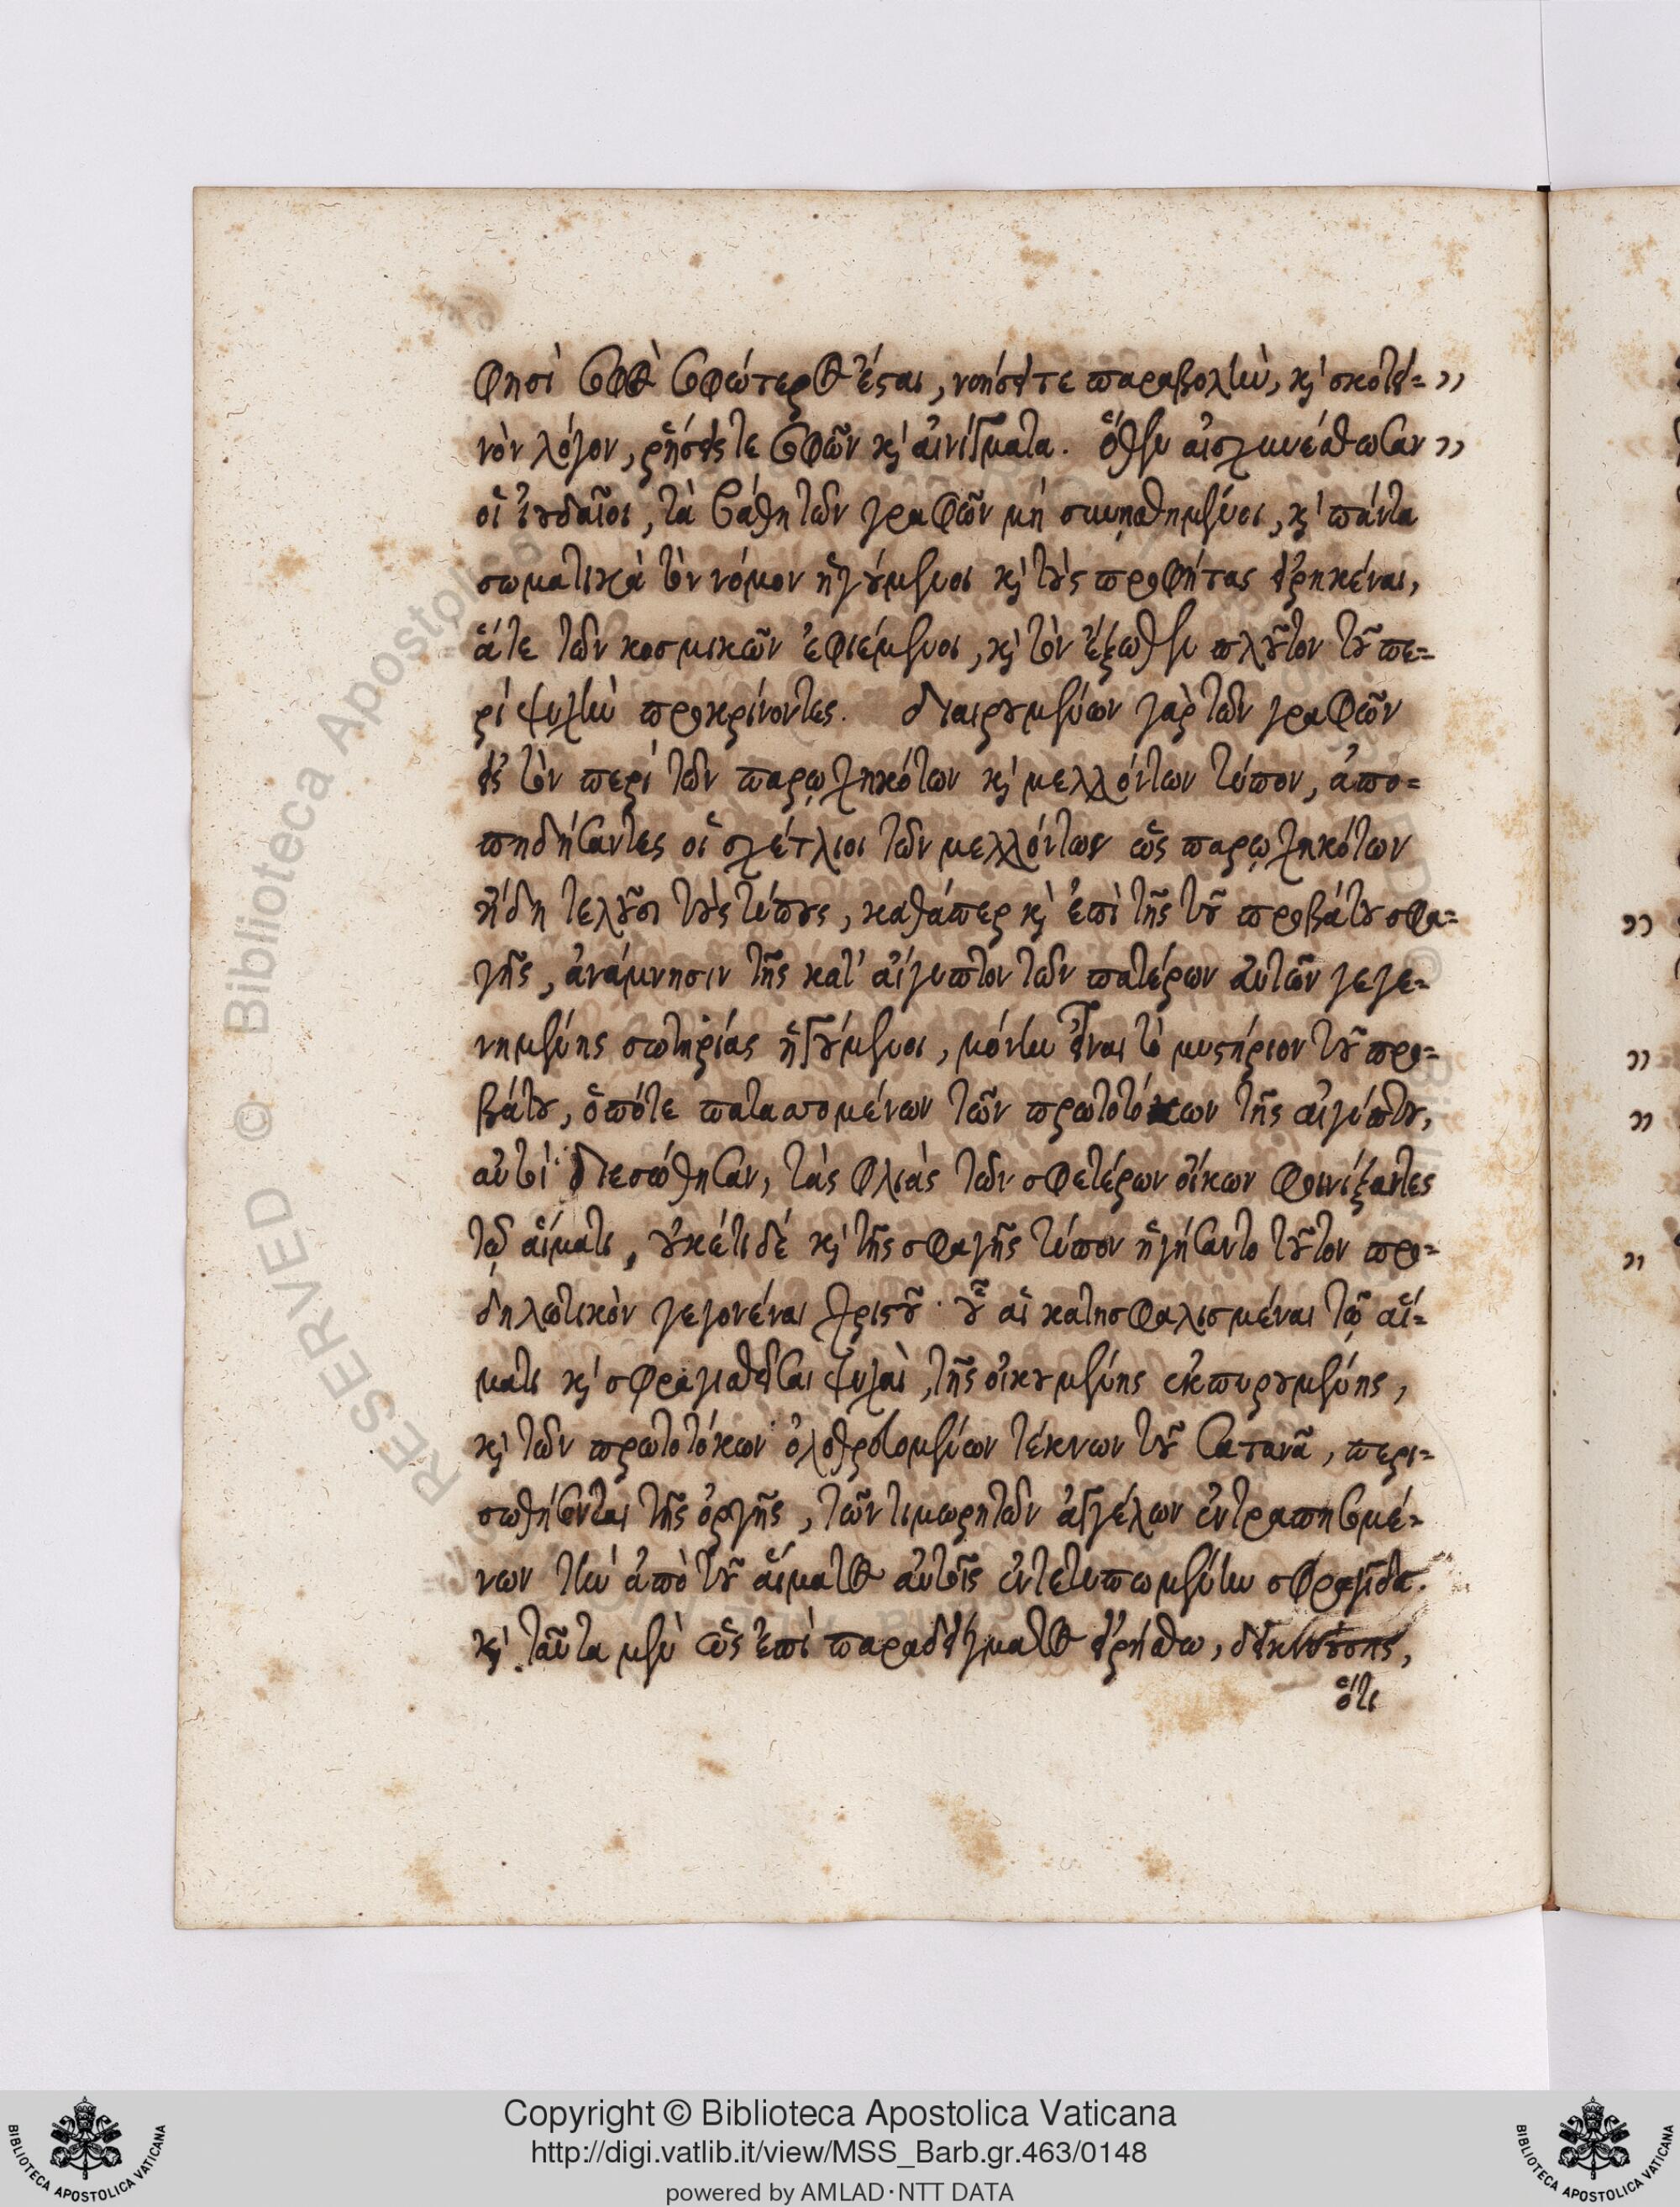 φησὶ σοφὸς σοφώτερος ἔσται, νοήσει τε παραβολὴν, κὶ σκοτει=
νὸν λόγον, ῥήσεις τε σοφῶν κὶ αἰνίγματα. ὅθεν αἰσχυνέσθωσαν
οἱ ἰουδαῖοι, τὰ βάθη τῶν γραφῶν μὴ συνησθημένοι, κὶ πάντα
σωματικὰ τὸν νόμον ἡγούμενοι κὶ τοὺς προφήτας εἰρηκέναι,
ἅτε τῶν κοσμικῶν ἐφιέμενοι, κὶ τὸν ἔξωθεν πλοῦτον τοῦ πε=
ρὶ ψυχὴν προκρίνοντες. διαιρουμένων γὰρ τῶν γραφῶν
εἰς τὸν περὶ τῶν παρῳχηκότων κὶ μελλόντων τύπον, ἀπο=
πηδήσαντες οἱ σχέτλιοι τῶν μελλόντων ὡς παρῳχηκότων
ἤδη τελοῦσι τοὺς τύπους, καθάπερ κὶ ἐπὶ τῆς τοῦ προβάτου σφα=
γῆς, ἀνάμνησιν τῆς κατ' αἴγυπτον τῶν πατέρων αὐτῶν γεγε=
νημένης σωτηρίας ἡγούμενοι, μόνην εἶναι τὸ μυστήριον τοῦ προ=
βάτου, ὁπότε πατασσομένων τῶν πρωτοτόκων τῆς αἰγύπτου,
αὐτοὶ διεσώθησαν, τὰς φλιὰς τῶν σφετέρων οἴκων φοινίξαντες
τῷ αἵματι, οὐκέτι δέ κὶ τῆς σφαγῆς τύπον ἡγήσαντο τοῦτον προ=
δηλωτικὸν γεγονέναι χριστοῦ· οὗ αἱ κατησφαλισμέναι τῷ αἵ=
ματι κὶ σφραγισθεῖσαι ψυχαὶ, τῆς οἰκουμένης ἐκπυρουμένης,
κὶ τῶν πρωτοτόκων ὀλοθρευομένων τέκνων τοῦ σατανᾶ, περι=
σωθήσονται τῆς ὀργῆς, τῶν τιμωρητῶν ἀγγέλων ἐντραπησομέ=
νων τὴν ἀπὸ τοῦ αἵματος αὐτοῖς ἐντετυπωμένην σφραγῖδα.
κὶ ταῦτα μὲν ὡς ἐπὶ παραδείγματος εἰρήσθω, δεικνυούσης,
ὅτι
Copyright © Biblioteca Apostolica Vaticana
http://digi.vatlib.it/view/MSS_Barb.gr.463/0148
powered by AMLAD·NTT DATA
BIBLIOTECA APOSTOLICA VATICANA
BIBLIOTECA APOSTOLICA VATICANA